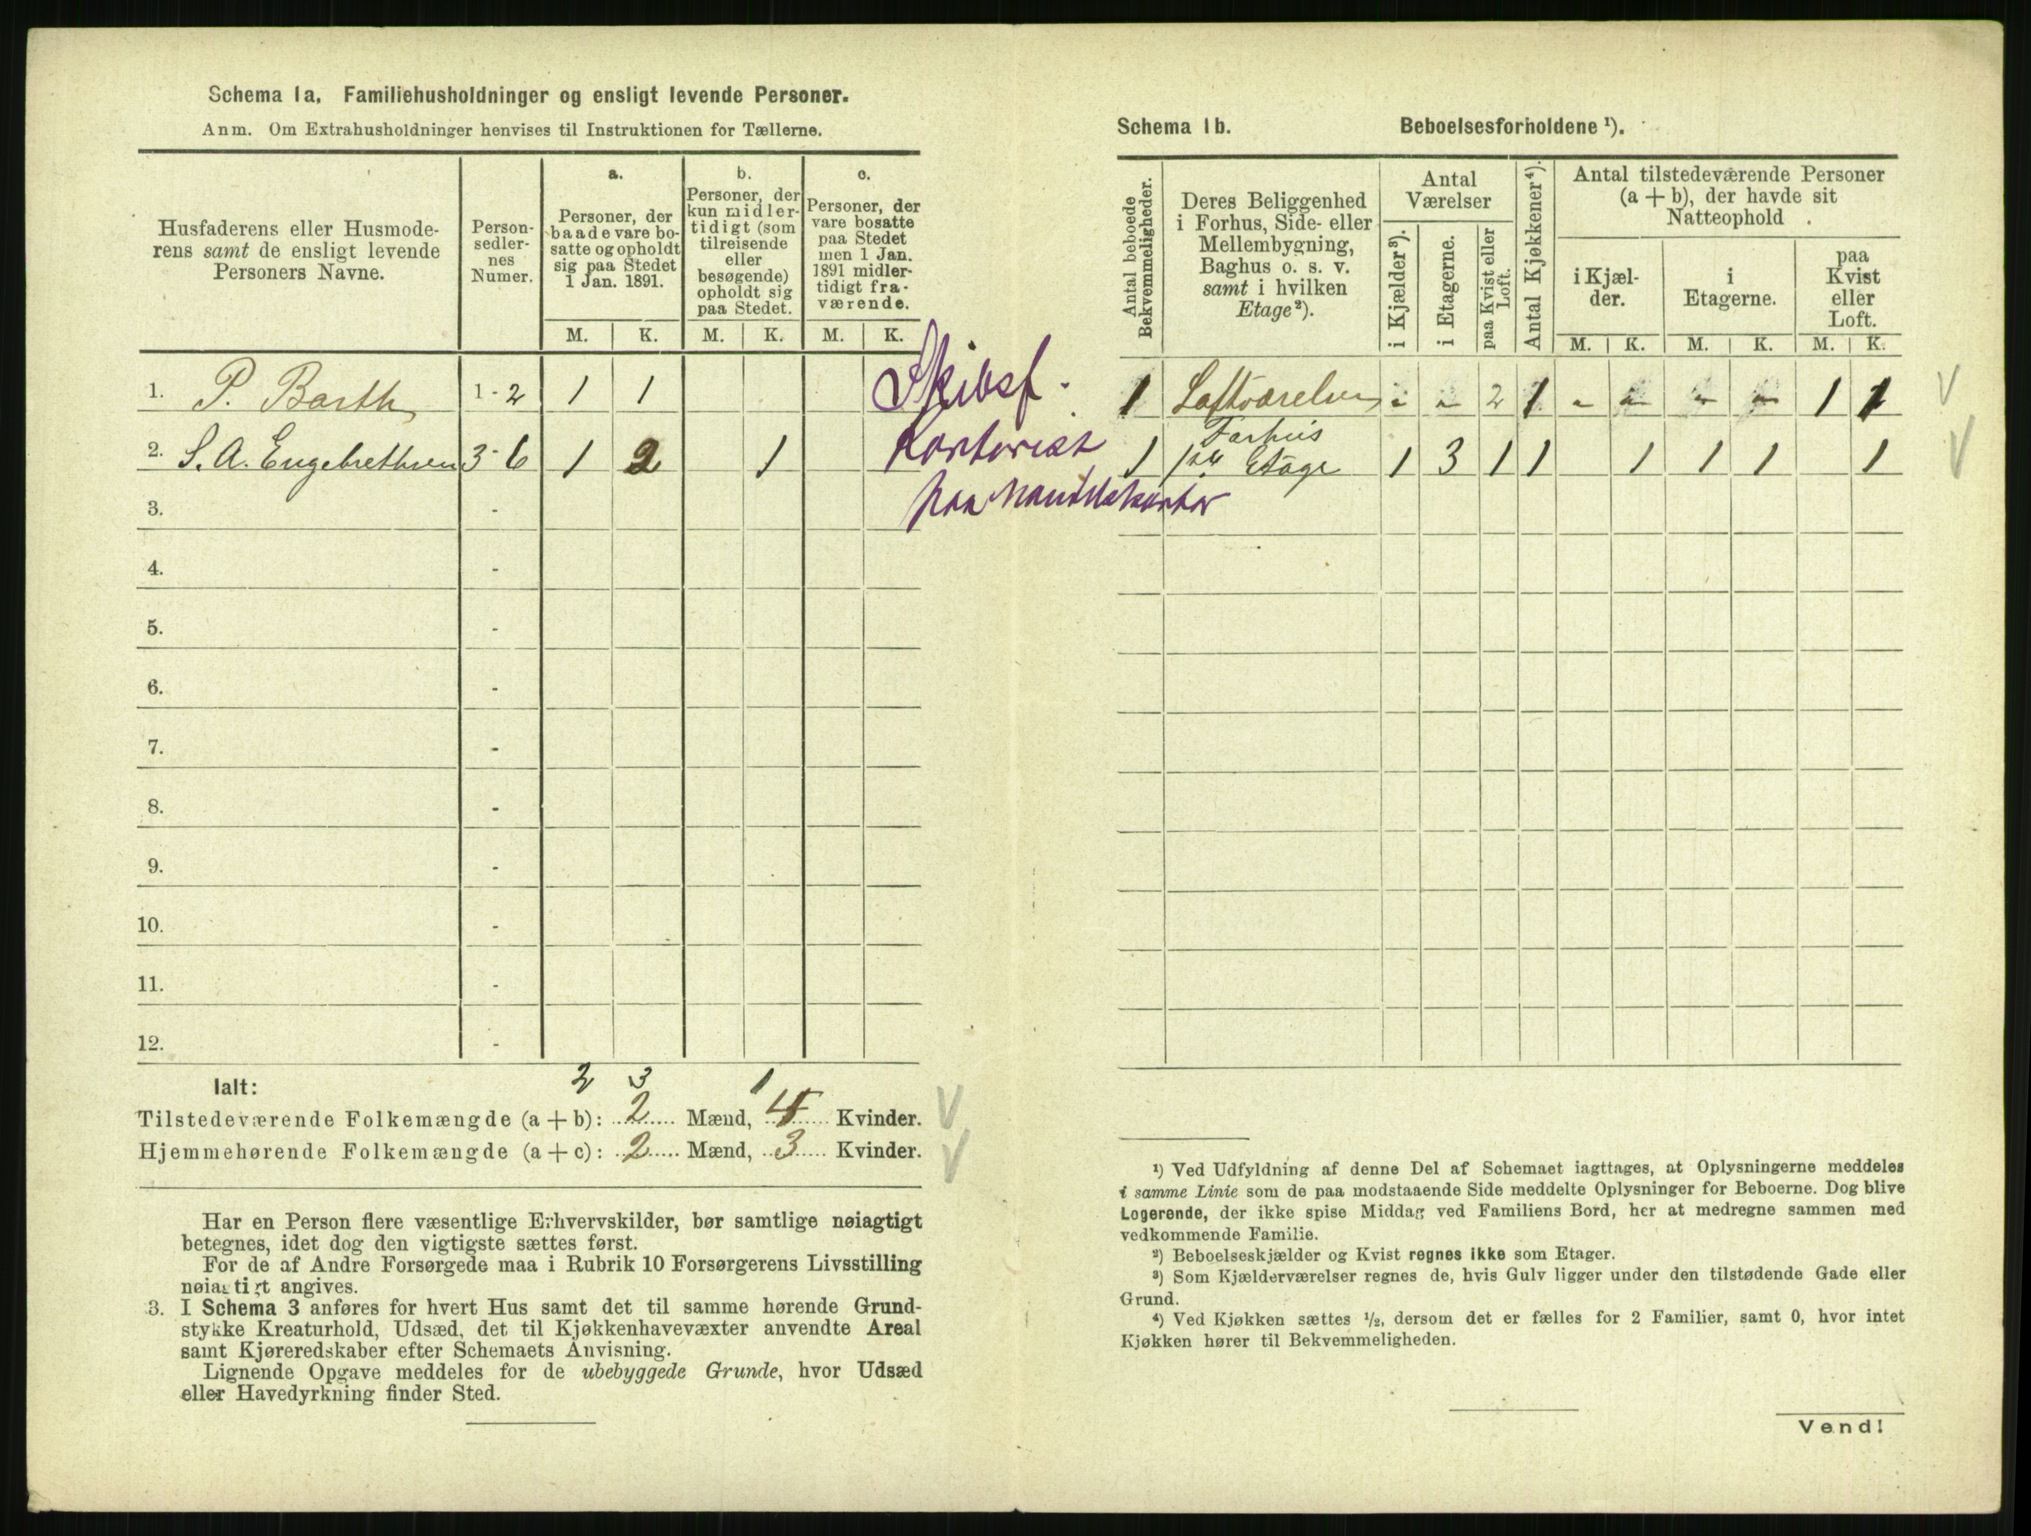 Schema 1a. Familiehusholdninger og ensligt levende Personer.
Anm. Om Extrahusholdninger henvises til Instruktionen for Tællerne.
Husfaderens eller Husmode-
rens samt de ensligt levende
Personers Navne.
Person-
sedler-
nes
Numer.
a.
Personer, der
baade vare bo-
satte og opholdt
sig paa Stedet
1 Jan. 1891.
b.
Personer, der
kun midler-
tidigt (som
tilreisende
eller
besøgende)
opholdt sig
paa Stedet.
c.
Personer, der
vare bosatte
paa Stedet
men 1 Jan.
1891 midler-
tidigt fra-
værende.
M. K. M. K. M. K.
1. P. Barth 1 - 2 1 1 Skibsf.
2. S. A. Engebrethsen 3 - 6 1 2 1 Kontorist
paa Handelskontor
3. -
4. -
5. -
6. -
7. -
8. -
9. -
10. -
11. -
12. -
Ialt: 2 3 1
Tilstedeværende Folkemængde (a + b): 2 Mænd, 4 Kvinder.
Hjemmehørende Folkemængde (a + c): 2 Mænd, 3 Kvinder.
Har en Person flere væsentlige Erhvervskilder, bør samtlige nøiagtigt
betegnes, idet dog den vigtigste sættes først.
For de af Andre Forsørgede maa i Rubrik 10 Forsørgerens Livsstilling
nøiagtigt angives.
3. I Schema 3 anføres for hvert Hus samt det til samme hørende Grund-
stykke Kreaturhold, Udsæd, det til Kjøkkenhavevæxter anvendte Areal
samt Kjøreredskaber efter Schemaets Anvisning.
Lignende Opgave meddeles for de ubebyggede Grunde, hvor Udsæd
eller Havedyrkning finder Sted.
Schema 1b. Beboelsesforholdene ¹).
Antal beboede
Bekvemmeligheder.
Deres Beliggenhed
i Forhus, Side- eller
Mellembygning,
Baghus o. s. v.
samt i hvilken
Etage²).
Antal
Værelser
i Kjælder³).
i Etagerne.
paa Kvist eller
Loft.
Antal Kjøkkener⁴).
Antal tilstedeværende Personer
(a + b), der havde sit
Natteophold
i Kjæl-
der.
i
Etagerne.
paa
Kvist
eller
Loft.
M. K. M. K. M. K.
1 Loftværelser - - 2 1 - - - - 1 1
Forhus
1 1ste Etage 1 3 1 1 1 1 1 1
¹) Ved Udfyldning af denne Del af Schemaet iagttages, at Oplysningerne meddeles
i samme Linie som de paa modstaaende Side meddelte Oplysninger for Beboerne. Dog blive
Logerende, der ikke spise Middag ved Familiens Bord, her at medregne sammen med
vedkommende Familie.
²) Beboelseskjælder og Kvist regnes ikke som Etager.
³) Som Kjælderværelser regnes de, hvis Gulv ligger under den tilstødende Gade eller
Grund.
⁴) Ved Kjøkken sættes ½, dersom det er fælles for 2 Familier, samt 0, hvor intet
Kjøkken hører til Bekvemmeligheden.
Vend!